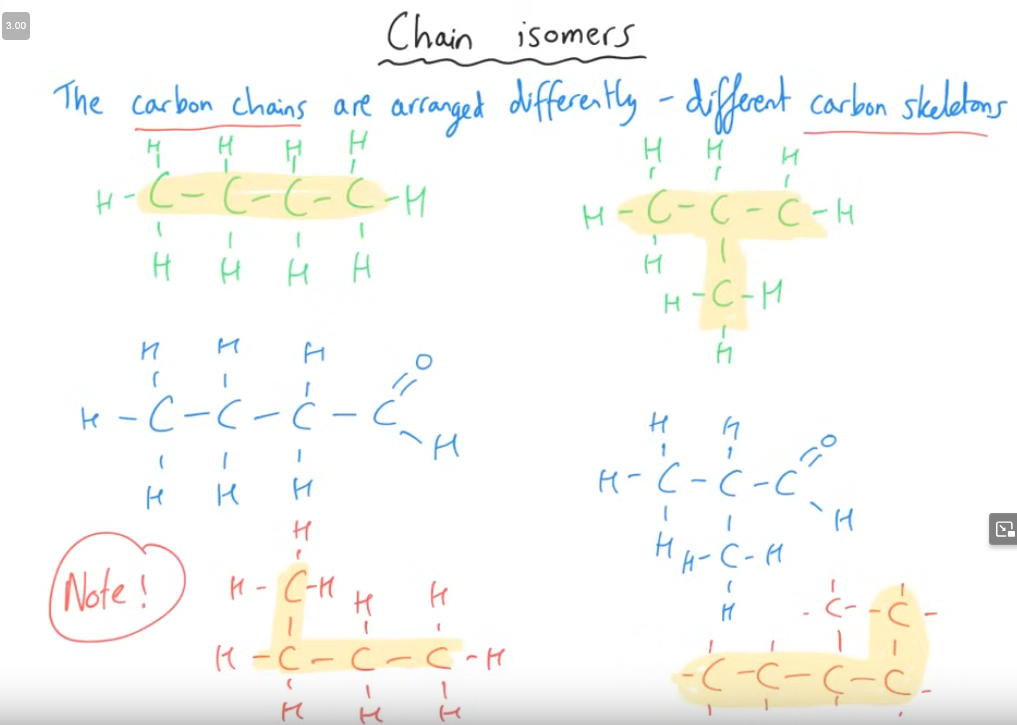 3.00
Chain isomers
The carbon chains are arranged differently - different carbon skeletons
H H H H
H - C - C - C - C - H
H H H H
H H H
H - C - C - C - H
H
H - C - H
H
H H H O
H - C - C - C - C
H
H H H
H H O
H - C - C - C
H
H H - C - H
H
Note!
H
H - C - H H H
H - C - C - C - H
H H H
- C - - C -
- C - C - C - C -